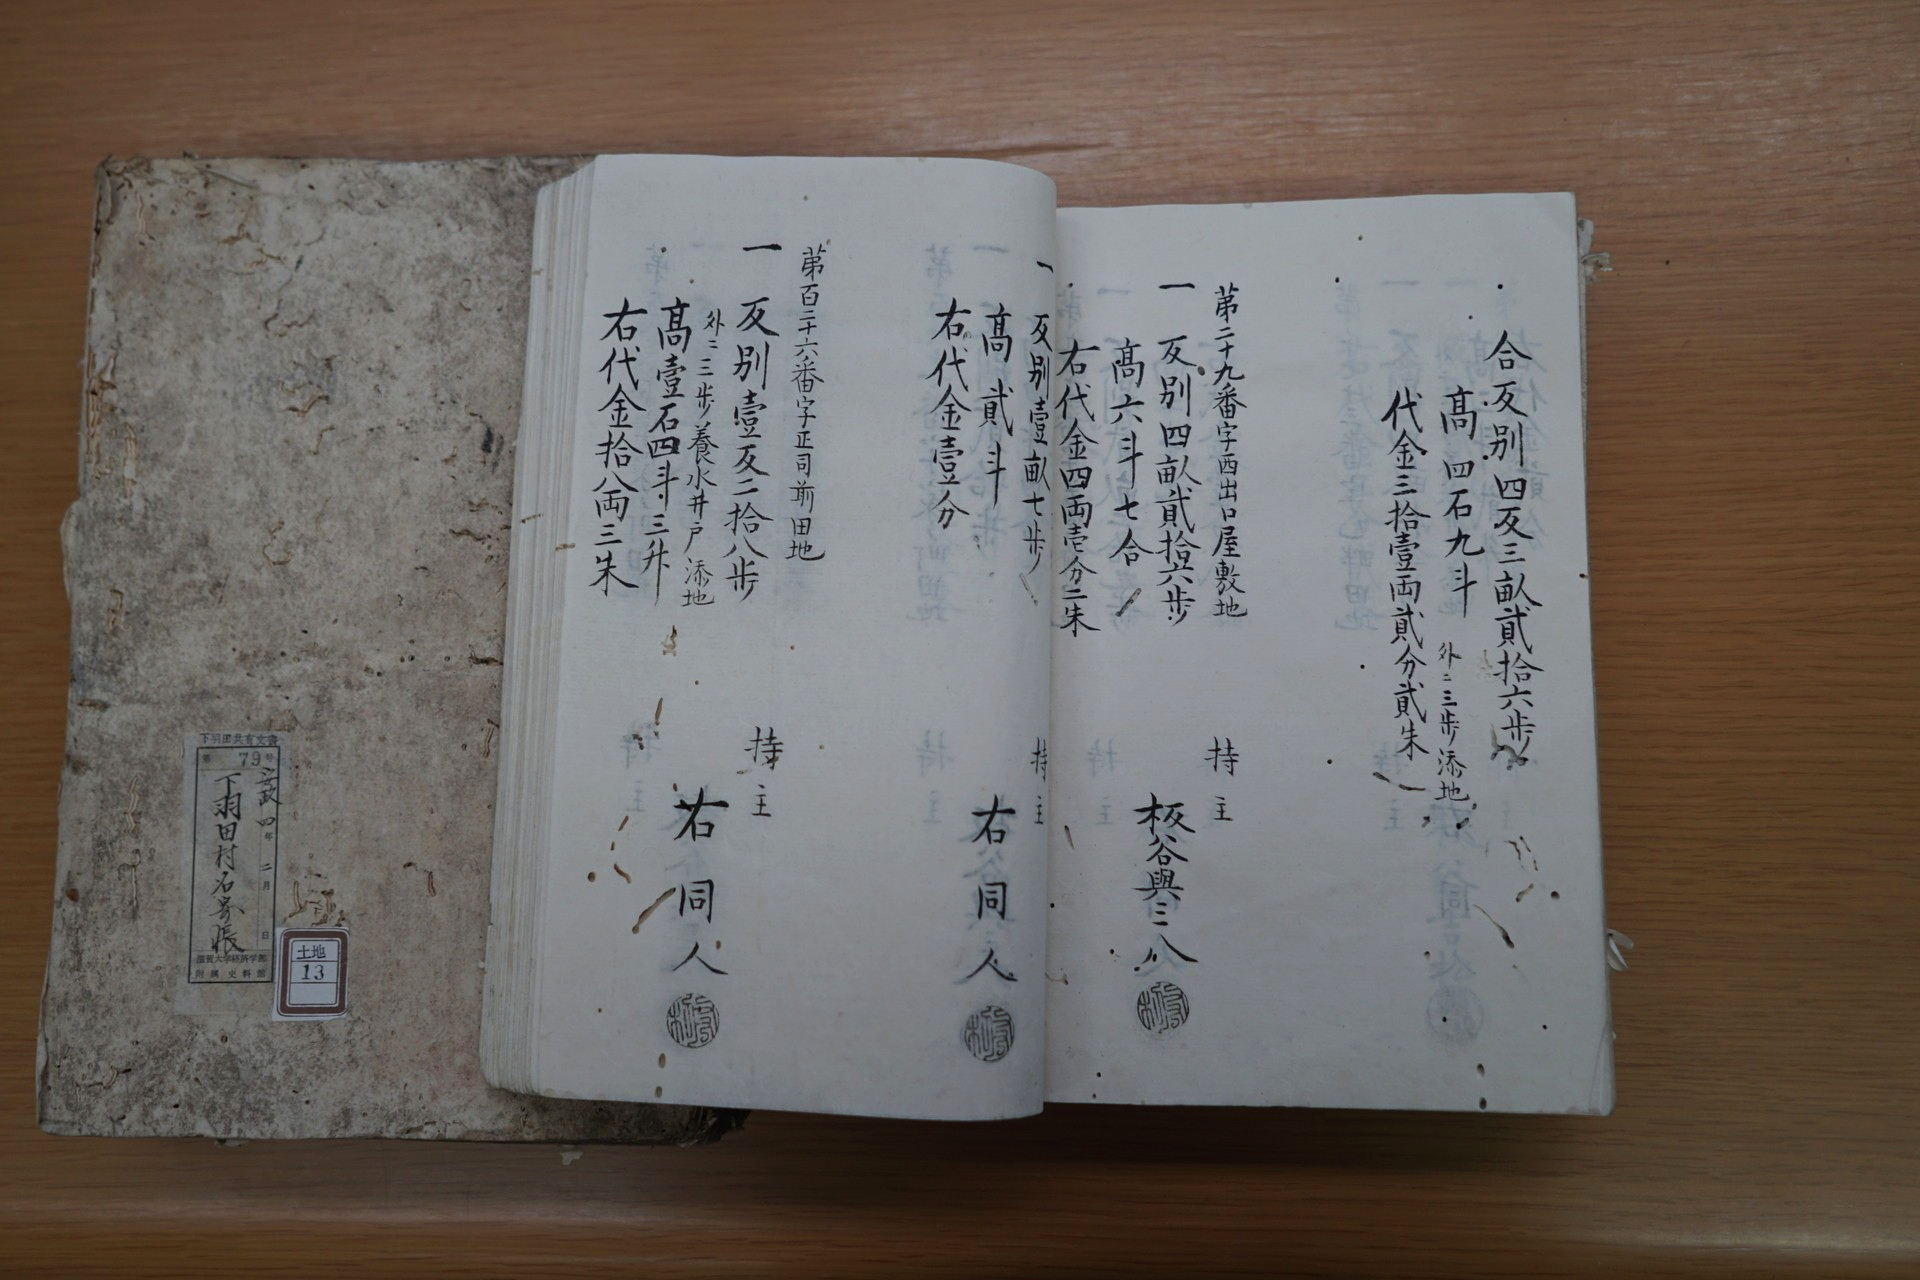 合反別四反三畝貳拾六歩
高四石九斗
外ニ三歩添地
代金三拾壹両貳分貳朱
第二十九番字西出口屋敷地
一 反別四畝貳拾六歩
高六斗七合
右代金四両壱分二朱
持主
板谷與三八
一 反別壹畝七歩
高貳斗
右代金壹分
持主
右同人
第百二十六番字正司前田地
一 反別壹反二拾八歩
外ニ三歩養水井戸添地
高壹石四斗三升
右代金拾八両三朱
持主
右同人
下羽田共有文書
第79号
安政四年二月 日
下羽田村名寄帳
滋賀大学経済学部
附属史料館
土地
13